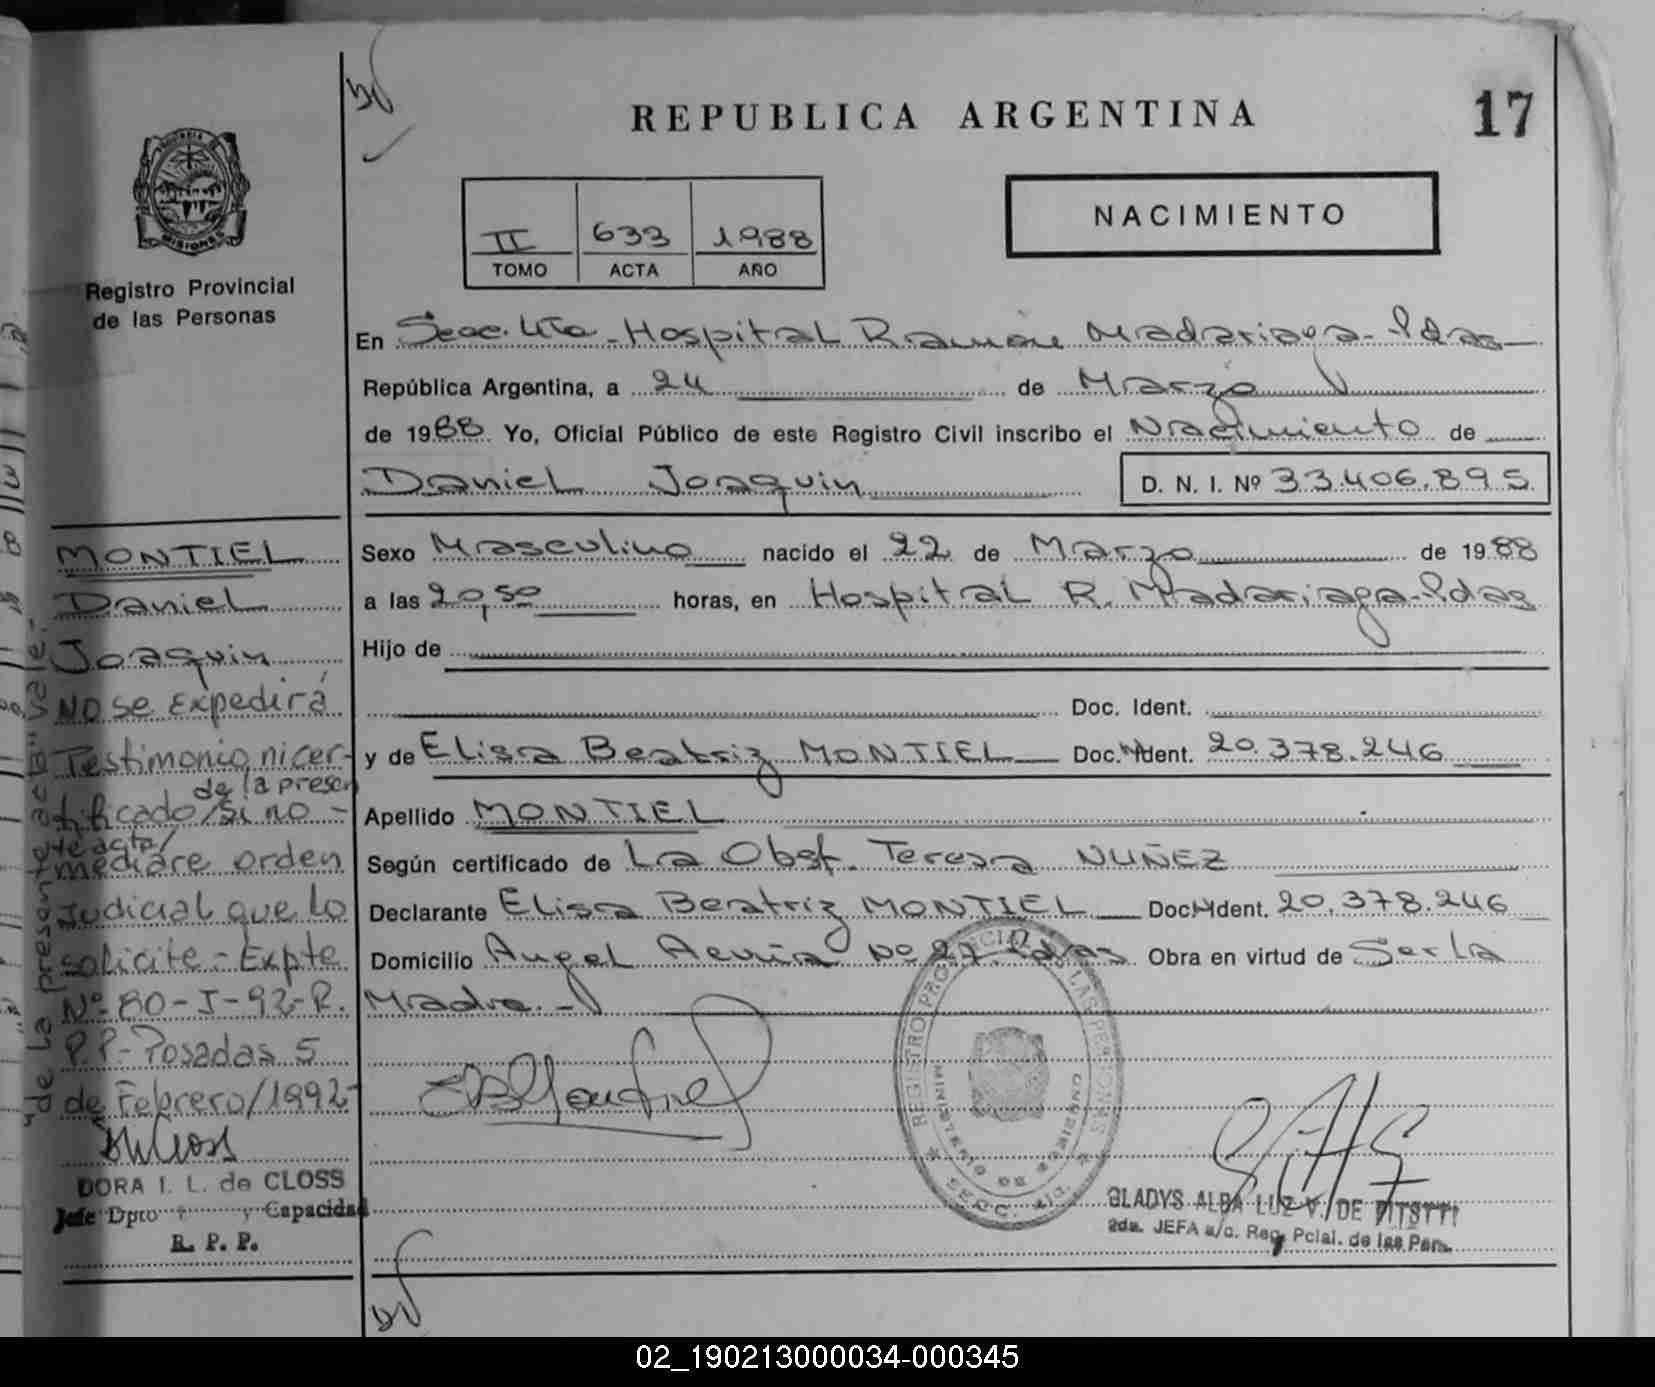 REPUBLICA ARGENTINA
17
PROVINCIA DE
MISIONES
Registro Provincial
de las Personas
NACIMIENTO
II 633 1988
TOMO ACTA AÑO
En Secc. 4ta - Hospital Ramón Madariaga - Pdas
República Argentina, a 24 de Marzo
de 1988 Yo, Oficial Público de este Registro Civil inscribo el Nacimiento de
Daniel Joaquin D. N. I. Nº 33.406.895
Sexo Masculino nacido el 22 de Marzo de 1988
a las 20,50 horas, en Hospital R. Madariaga - Pdas
Hijo de
Doc. Ident.
y de Elisa Beatriz MONTIEL Doc. Ident. 20.378.246
Apellido MONTIEL
Según certificado de La Obst. Teresa NUÑEZ
Declarante Elisa Beatriz MONTIEL Doc. Ident. 20.378.246
Domicilio Angel Acuña Nº 27. Pdas Obra en virtud de Ser la
Madre.-
MONTIEL
Daniel
Joaquin
No se Expedirá
Testimonio ni cer-
de la presen
tificado/si no -
te acta/
mediare orden
Judicial que lo
solicite - Expte
Nº 80-I-92-R.
P.P - Posadas 5
de Febrero/1992-
DORA I. L. de CLOSS
Jefe Dpto y Capacidad
R. P. P.
"de la presente acta" vale.-
REGISTRO PROVINCIAL DE LAS PERSONAS
GLADYS ALBA LUZ V. DE
2da. JEFA a/c. Reg. Pcial. de las Pers.
02_190213000034-000345